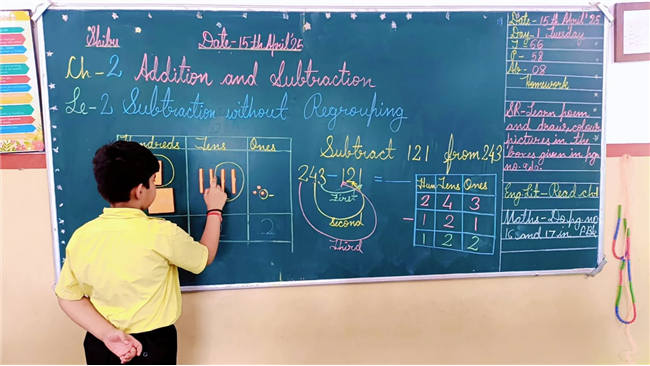 Shibu
Date-15th April'25
Ch-2 Addition and Subtraction
Le-2 Subtraction without Regrouping
Hundreds Tens Ones
2
Subtract 121 from 243
243-121 =
First
Second
Third
Hun Tens Ones
2 4 3
- 1 2 1
1 2 2
Date-15th April'25
Day-Tuesday
T-66
P-58
Ab-08
Homework
SR-Learn poem
and draw&colour
pictures in the
boxes given in pg
Eng Lit-Read ch1
Maths-Do pg.no
16 and 17 in